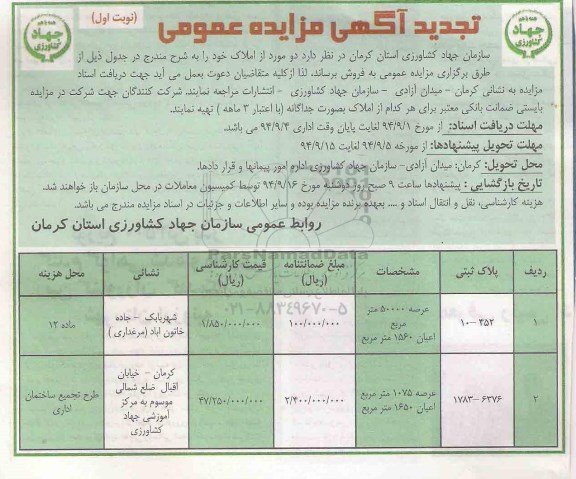 تجدید آگهی مزایده عمومی
(نوبت اول)
جهاد کشاورزی
جهاد کشاورزی
سازمان جهاد کشاورزی استان کرمان در نظر دارد دو مورد از املاک خود را به شرح مندرج در جدول ذیل از
طرق برگزاری مزایده عمومی به فروش برساند، لذا ازکلیه متقاضیان دعوت بعمل می آید جهت دریافت اسناد
مزایده به نشانی کرمان - میدان آزادی - سازمان جهاد کشاورزی - انتشارات مراجعه نمایند. شرکت کنندگان جهت شرکت در مزایده
بایستی ضمانت بانکی معتبر برای هر کدام از املاک بصورت جداگانه (با اعتبار ۳ ماهه ) تهیه نمایند.
مهلت دریافت اسناد: از مورخ ۹۴/۹/۱ لغایت پایان وقت اداری ۹۴/۹/۴ می باشد.
مهلت تحویل پیشنهادها: از مورخه ۹۴/۹/۵ لغایت ۹۴/۹/۱۵
محل تحویل: کرمان: میدان آزادی- سازمان جهاد کشاورزی اداره امور پیمانها و قرار دادها.
تاریخ بازگشایی : پیشنهادها ساعت ۹ صبح روز دوشنبه مورخ ۹۴/۹/۱۶ توسط کمیسیون معاملات در محل سازمان باز خواهند شد.
هزینه کارشناسی، نقل و انتقال اسناد و .... بعهده برنده مزایده بوده و سایر اطلاعات و جزئیات در اسناد مزایده مندرج می باشد.
روابط عمومی سازمان جهاد کشاورزی استان کرمان
ParsNamadData
۰۲۱-۸۸۳۴۹۶۷۰-۵
ردیف پلاک ثبتی مشخصات مبلغ ضمانتنامه (ریال) قیمت کارشناسی (ریال) نشانی محل هزینه
۱ ۳۵۲-۱۰ عرصه ۵۰۰۰۰ متر مربع اعیان ۱۵۶۰ متر مربع ۱۰۰/۰۰۰/۰۰۰ ۱/۸۵۰/۰۰۰/۰۰۰ شهربابک - جاده خاتون اباد (مرغداری ) ماده ۱۲
۲ ۶۳۷۶-۱۷۸۳ عرصه ۱۰۷۵ متر مربع اعیان ۱۶۵۰ متر مربع ۲/۴۰۰/۰۰۰/۰۰۰ ۴۷/۲۵۰/۰۰۰/۰۰۰ کرمان - خیابان اقبال ضلع شمالی موسوم به مرکز آموزشی جهاد کشاورزی طرح تجمیع ساختمان اداری